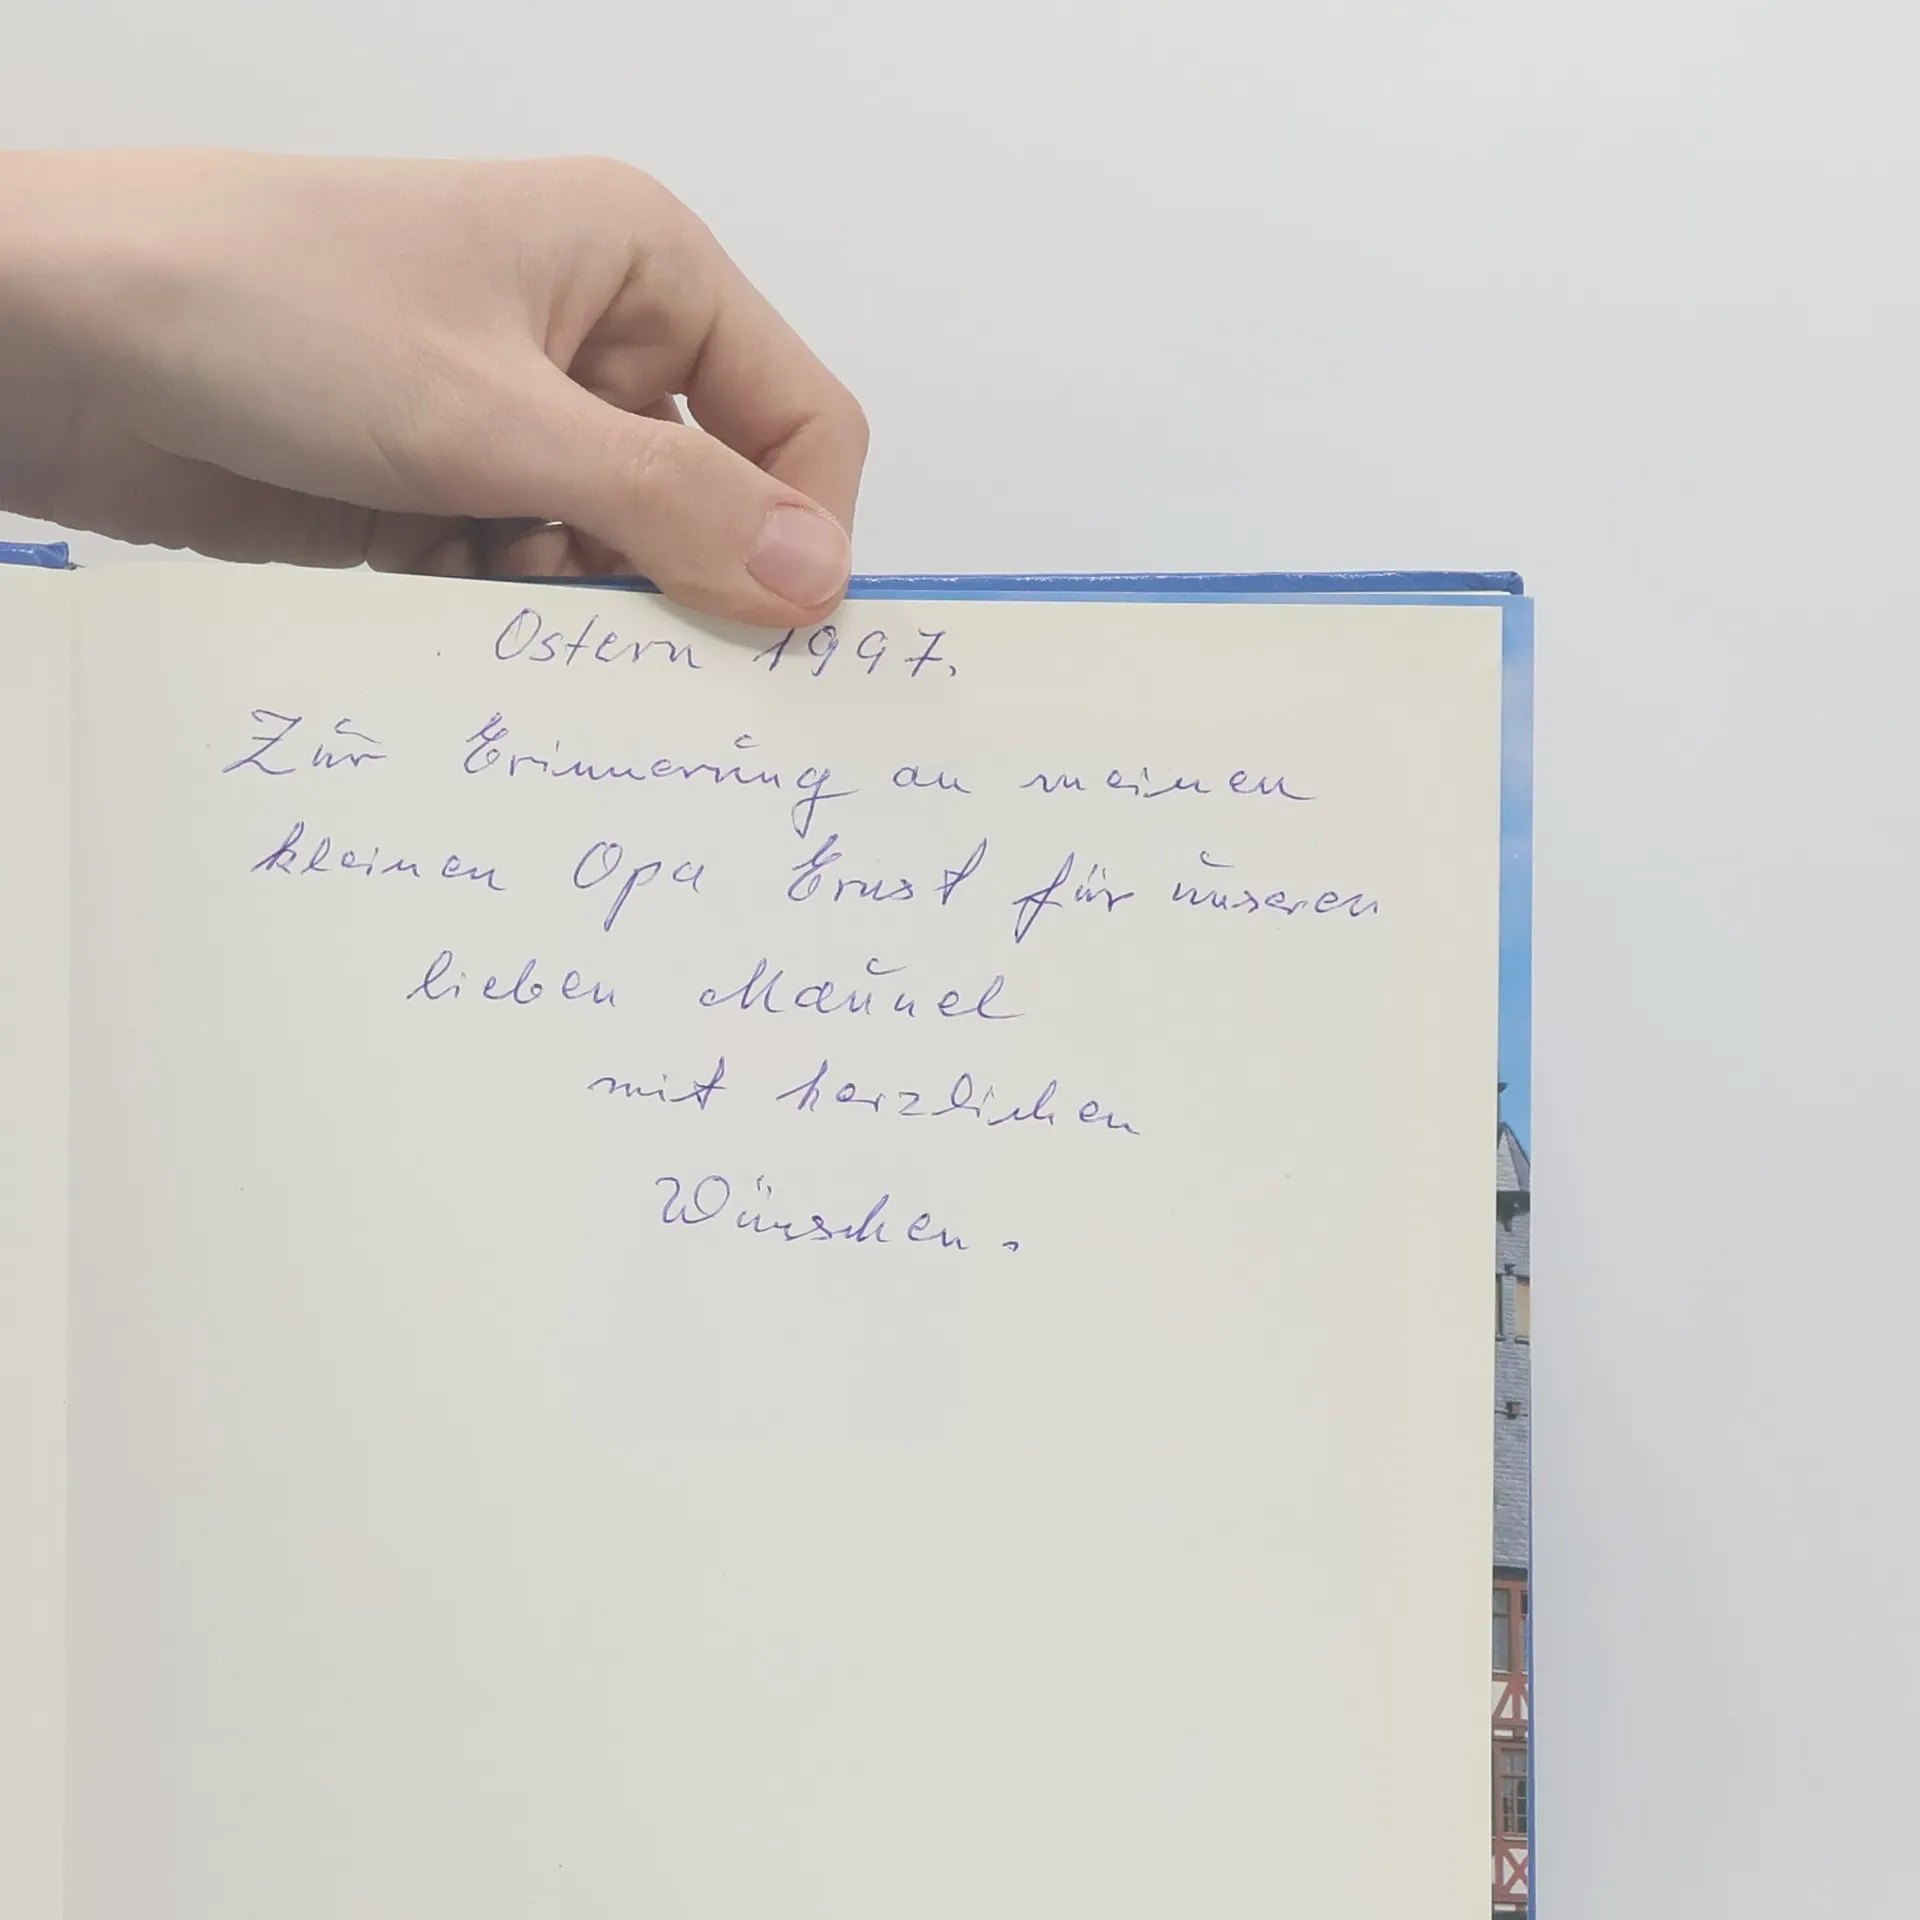 Ostern 1997.
Zur Erinnerung an meinen
kleinen Opa Ernst für unseren
lieben Manuel
mit herzlichen
Wünschen.